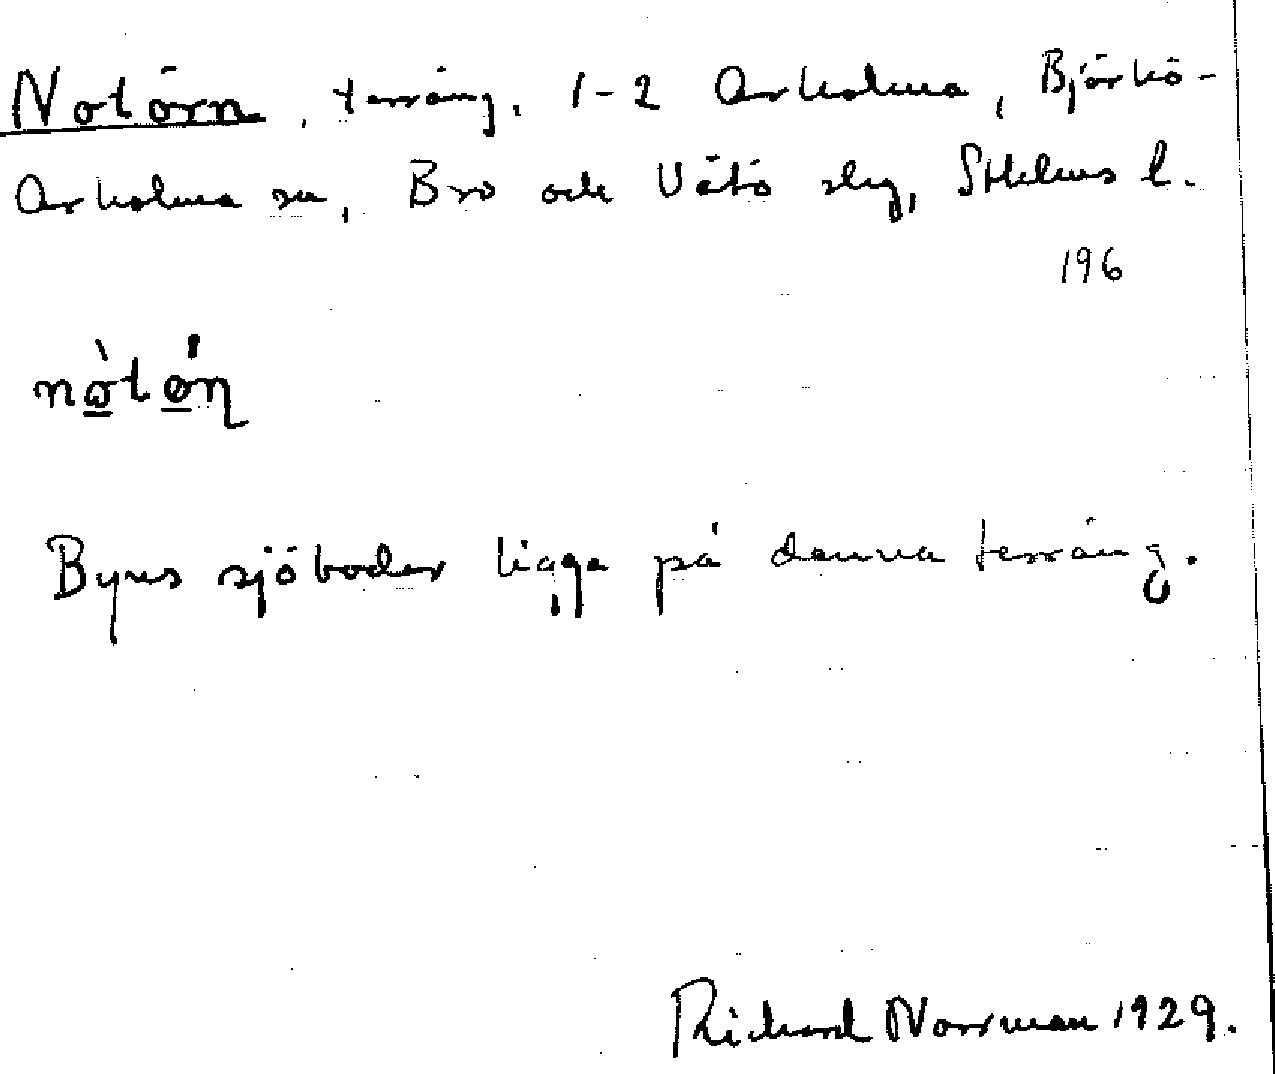 Notörn, terräng, 1-2 Arholma, Björkö-
Arholma sn, Bro och Vätö slg, Sthlms l.
196
nò̠tǿ̠ɳ
Byns sjöbodar ligga på denna terräng.
Richard Norrman 1929.